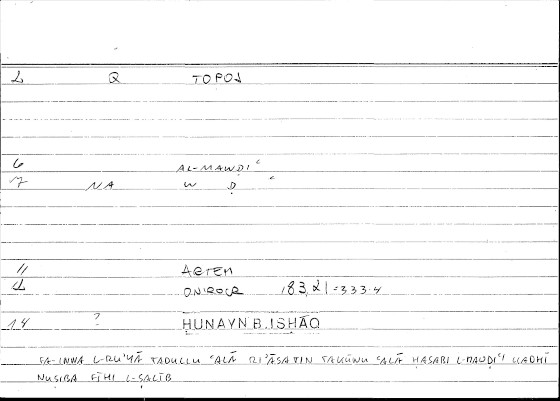 2 Q TOPOS
6 AL-MAWḌIʿ
7 NA W Ḍ ʿ
11 ARTEM
ONIROCR 183,21 = 333.4
14 ? ḤUNAYN B. ISḤĀQ
FA-INNA L-RUʾYĀ TADULLU ʿALĀ RIʾĀSATIN TAKŪNU ʿALĀ ḤASABI L-MAWḌIʿI LLADHĪ
NUṢIBA FĪHI L-ṢALĪB